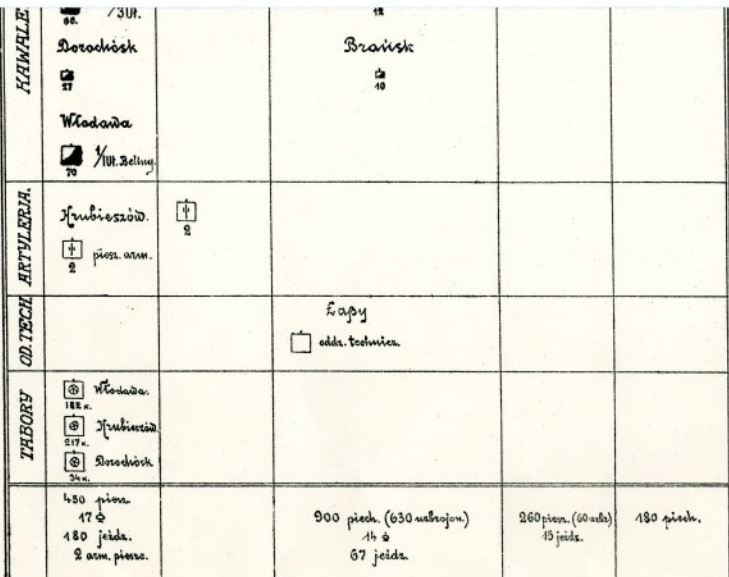 KAWALE
60. /3 Uł. 12
Dorochósk Brańsk
27 10
Włodawa
70 1/1 Uł. Beliny.
ARTYLERJA.
Hrubieszów.
2 piesz. arm. 2
OD. TECH.
Łapy
oddz. technicz.
TABORY
Włodawa.
182 к.
Hrubieszów
217 к.
Dorochósk
34 к.
450 piesz.
17
180 jeźdz.
2 arm. pieszo.
900 piech. (630 uzbrojon.)
14
67 jeźdz.
260 piesz. (60 uzbr)
15 jeźdz.
180 piech.